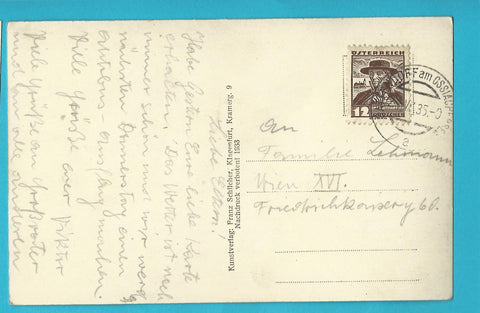 Liebe Eltern!
Habe gestern Eure liebe Karte
erhalten. Das Wetter ist noch
immer schön und wir werden
nächsten Donnerstag einen
Autobus ausflug machen.
Viele Grüße euer Viktor
Viele Grüße an Großvater
und an alle anderen
Kunstverlag: Franz Schilcher, Klagenfurt, Kramerg. 9
Nachdruck verboten! 1933
ÖSTERREICH
12 GROSCHEN
AM OSSIACHERSEE
An
Familie Lehmann
Wien XVI.